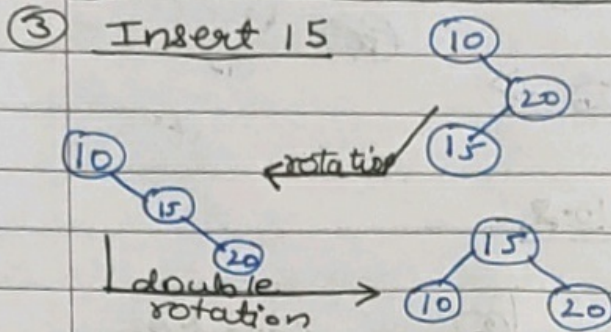 ③ Insert 15
10
20
15
rotation
10
15
20
double
rotation
15
10
20